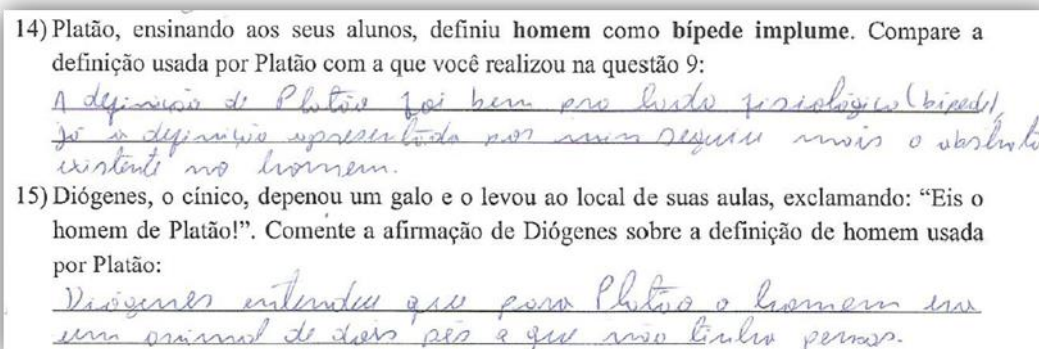 14) Platão, ensinando aos seus alunos, definiu homem como bípede implume. Compare a
definição usada por Platão com a que você realizou na questão 9:
A definição de Platão foi bem pro lado fisiológico (bípede),
já a definição apresentada por mim seguiu mais o abstrato
existente no homem.
15) Diógenes, o cínico, depenou um galo e o levou ao local de suas aulas, exclamando: “Eis o
homem de Platão!”. Comente a afirmação de Diógenes sobre a definição de homem usada
por Platão:
Diógenes entendeu que para Platão o homem era
um animal de dois pés e que não tinha penas.